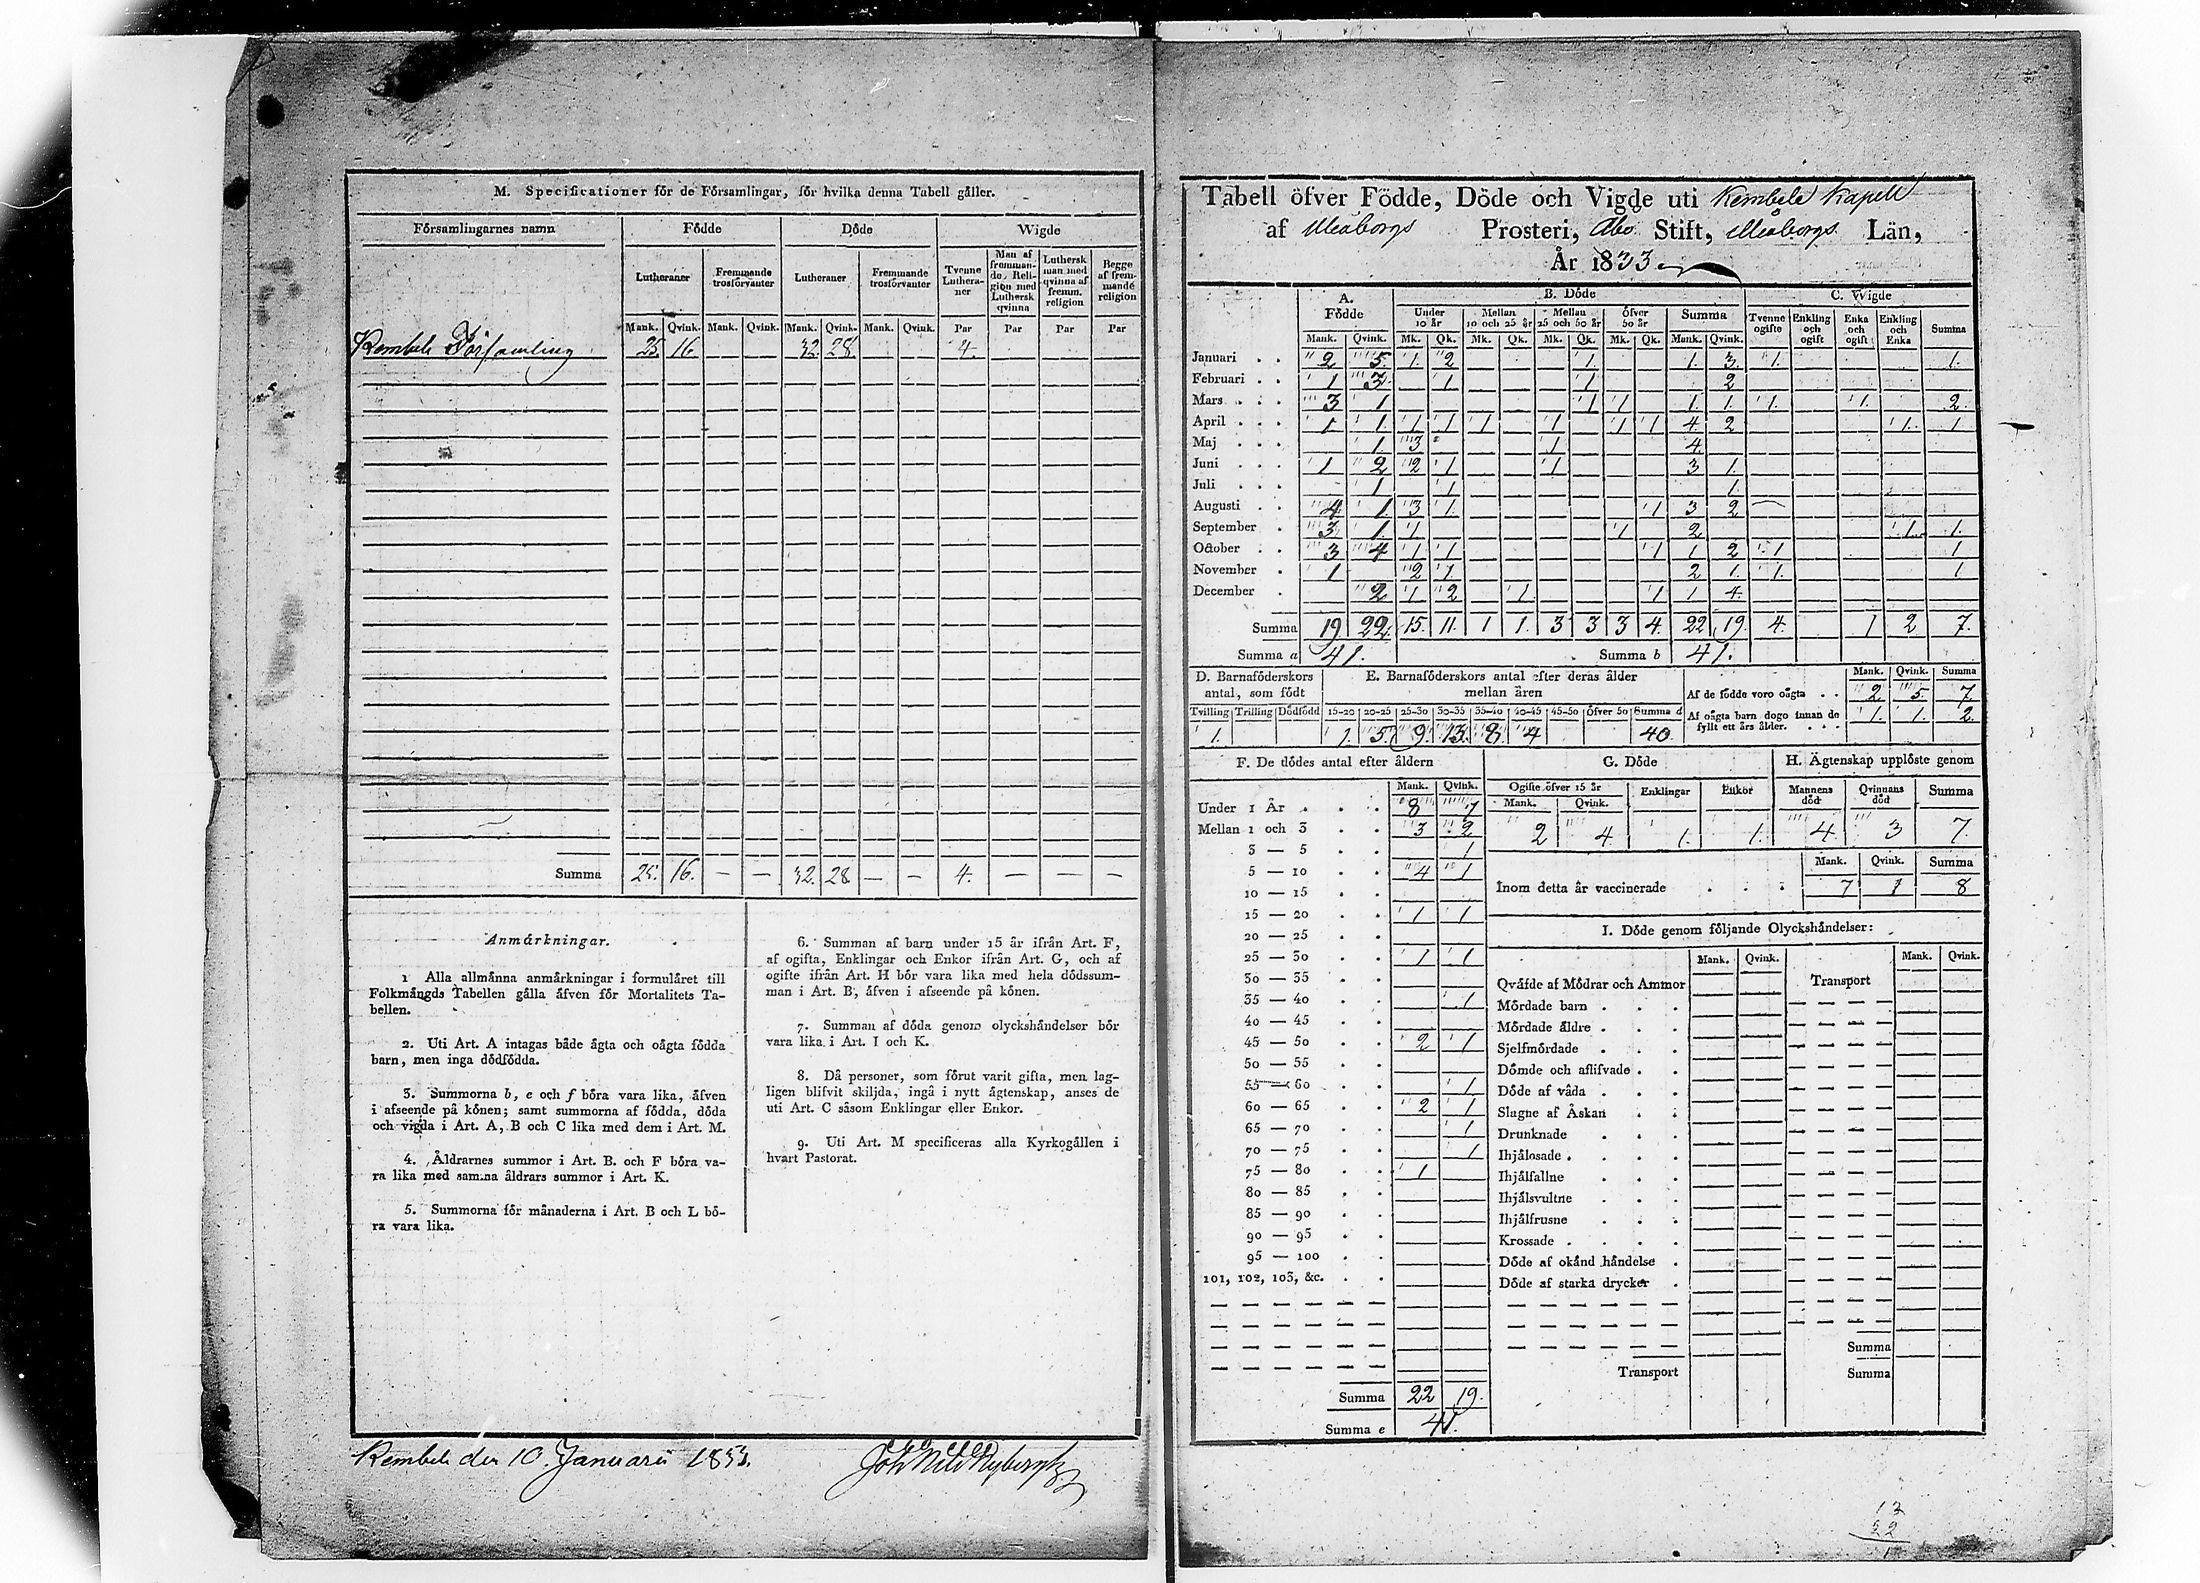 M. Specificationer för de Församlingar, för hvilka denna Tabell gäller.
Församlingarnes namn Födde Döde Wigde
Lutheraner Fremmande trosförvanter Lutheraner Fremmande trosförvanter Tvenne Lutheraner Man af fremmande Religion med Luthersk qvinna Luthersk man med qvinna af fremm. religion Begge af fremmande religion
Mank. Qvink. Mank. Qvink. Mank. Qvink. Mank. Qvink. Par Par Par Par
Kembele Församling 25. 16. 32. 28. 4.
Summa 25. 16. — — 32. 28 — — 4. — — —
Anmärkningar.
1 Alla allmänna anmärkningar i formuläret till
Folkmängds Tabellen gälla äfven för Mortalitets Ta-
bellen.
2. Uti Art. A intagas både ägta och oägta födda
barn, men inga dödfödda.
3. Summorna b, e och f böra vara lika, äfven
i afseende på könen; samt summorna af födda, döda
och vigda i Art. A, B och C lika med dem i Art. M.
4. Åldrarnes summor i Art. B. och F böra va-
ra lika med samma åldrars summor i Art. K.
5. Summorna för månaderna i Art. B och L bö-
ra vara lika.
6. Summan af barn under 15 år ifrån Art. F,
af ogifta, Enklingar och Enkor ifrån Art. G, och af
ogifte ifrån Art. H bör vara lika med hela dödssum-
man i Art. B, äfven i afseende på könen.
7. Summan af döda genom olyckshändelser bör
vara lika i Art. I och K.
8. Då personer, som förut varit gifta, men lag-
ligen blifvit skiljda, ingå i nytt ägtenskap, anses de
uti Art. C såsom Enklingar eller Enkor.
9. Uti Art. M specificeras alla Kyrkogällen i
hvart Pastorat.
Kembele den 10 Januarii 1833.
Tabell öfver Födde, Döde och Vigde uti Kembele Kapell
af Uleåborgs Prosteri, Åbo Stift, Uleåborgs Län,
År 1833
A. Födde B. Döde C. Wigde
Under 10 år Mellan 10 och 25 år Mellan 25 och 50 år Öfver 50 år Summa Tvenne ogifte Enkling och ogift Enka och ogift Enkling och Enka Summa
Mank. Qvink. Mk. Qk. Mk. Qk. Mk. Qk. Mk. Qk. Mank. Qvink.
Januari 2 5. 1. 2 1. 1. 3. 1. 1.
Februari 1 3. 1 1 2
Mars 3 1 1 1 1. 1. 1. 1. 2.
April 1 1. 1 1 1 1 1 1 4. 2 1. 1
Maj 1 3 1 4.
Juni 1 2 2 1 1 3 1.
Juli 1 1 1.
Augusti 4 1. 3 1. 1 3 2
September 3 1. 1 1 2 1. 1.
October 3 4 1 1 1 1 2 1 1
November 1 2 1. 2 1. 1. 1
December 2 1 2 1. 1 1 4.
Summa 19 22. 15. 11. 1 1. 3 3 3 4. 22 19. 4. 1 2 7.
Summa a 41. Summa b 41.
D. Barnaföderskors antal, som födt E. Barnaföderskors antal efter deras ålder mellan åren Mank. Qvink. Summa
Af de födde voro oägta 2 5. 7.
Af oägta barn dogo innan de fyllt ett års ålder. 1. 1. 2.
Tvilling Trilling Dödfödd 15-20 20-25 25-30 30-35 35-40 40-45 45-50 Öfver 50 Summa d
1. 1. 5. 9. 13. 8. 4 40.
F. De dödes antal efter åldern
Mank. Qvink.
Under 1 År 8 7
Mellan 1 och 3 3 2
3 — 5 1
5 — 10 4 1
10 — 15
15 — 20 1 1
20 — 25
25 — 30 1 1
30 — 35
35 — 40 1
40 — 45
45 — 50 2 1
50 — 55
55 — 60 1
60 — 65 2 1
65 — 70 1
70 — 75 1
75 — 80 1
80 — 85
85 — 90
90 — 95
95 — 100
101, 102, 103, &c.
Summa 22 19.
Summa e 41.
G. Döde
Ogifte öfver 15 år Enklingar Enkor
Mank. Qvink.
2 4. 1. 1.
H. Ägtenskap upplöste genom
Mannens död Qvinnans död Summa
4. 3 7.
Mank. Qvink. Summa
Inom detta år vaccinerade 7 1 8
I. Döde genom följande Olyckshändelser:
Mank. Qvink. Mank. Qvink.
Qväfde af Mödrar och Ammor Transport
Mördade barn
Mördade äldre
Sjelfmördade
Dömde och aflifvade
Döde af våda
Slagne af Åskan
Drunknade
Ihjälosade
Ihjälfallne
Ihjälsvultne
Ihjälfrusne
Krossade
Döde af okänd händelse
Döde af starka drycker
Summa
Transport Summa